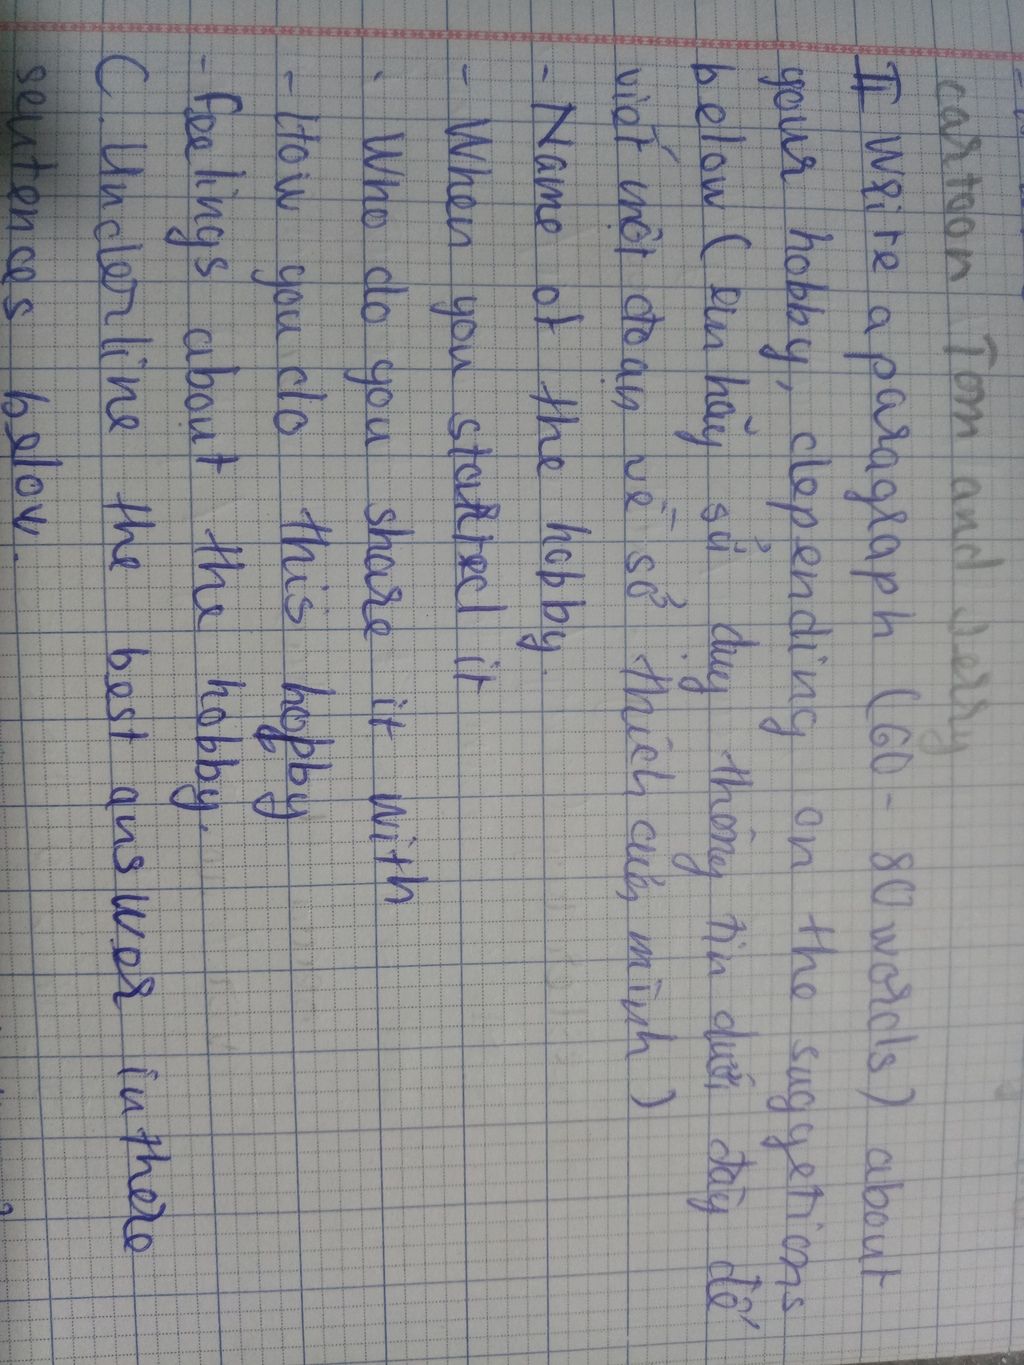 cartoon Tom and Jerry
II Write a paragraph (60 - 80 words) about
your hobby, depending on the suggetions
below (Em hãy sử dụng thông tin dưới đây để
viết một đoạn về sở thích của mình)
- Name of the hobby.
- When you started it
- Who do you share it with
- How you do this hobby
- Feelings about the hobby.
C. Underline the best answer in there
sentences below.